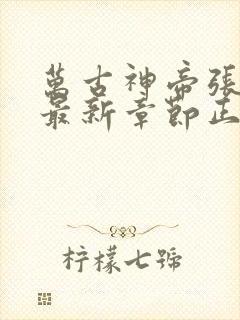 萬古神帝張
最新章節正
柠檬七號